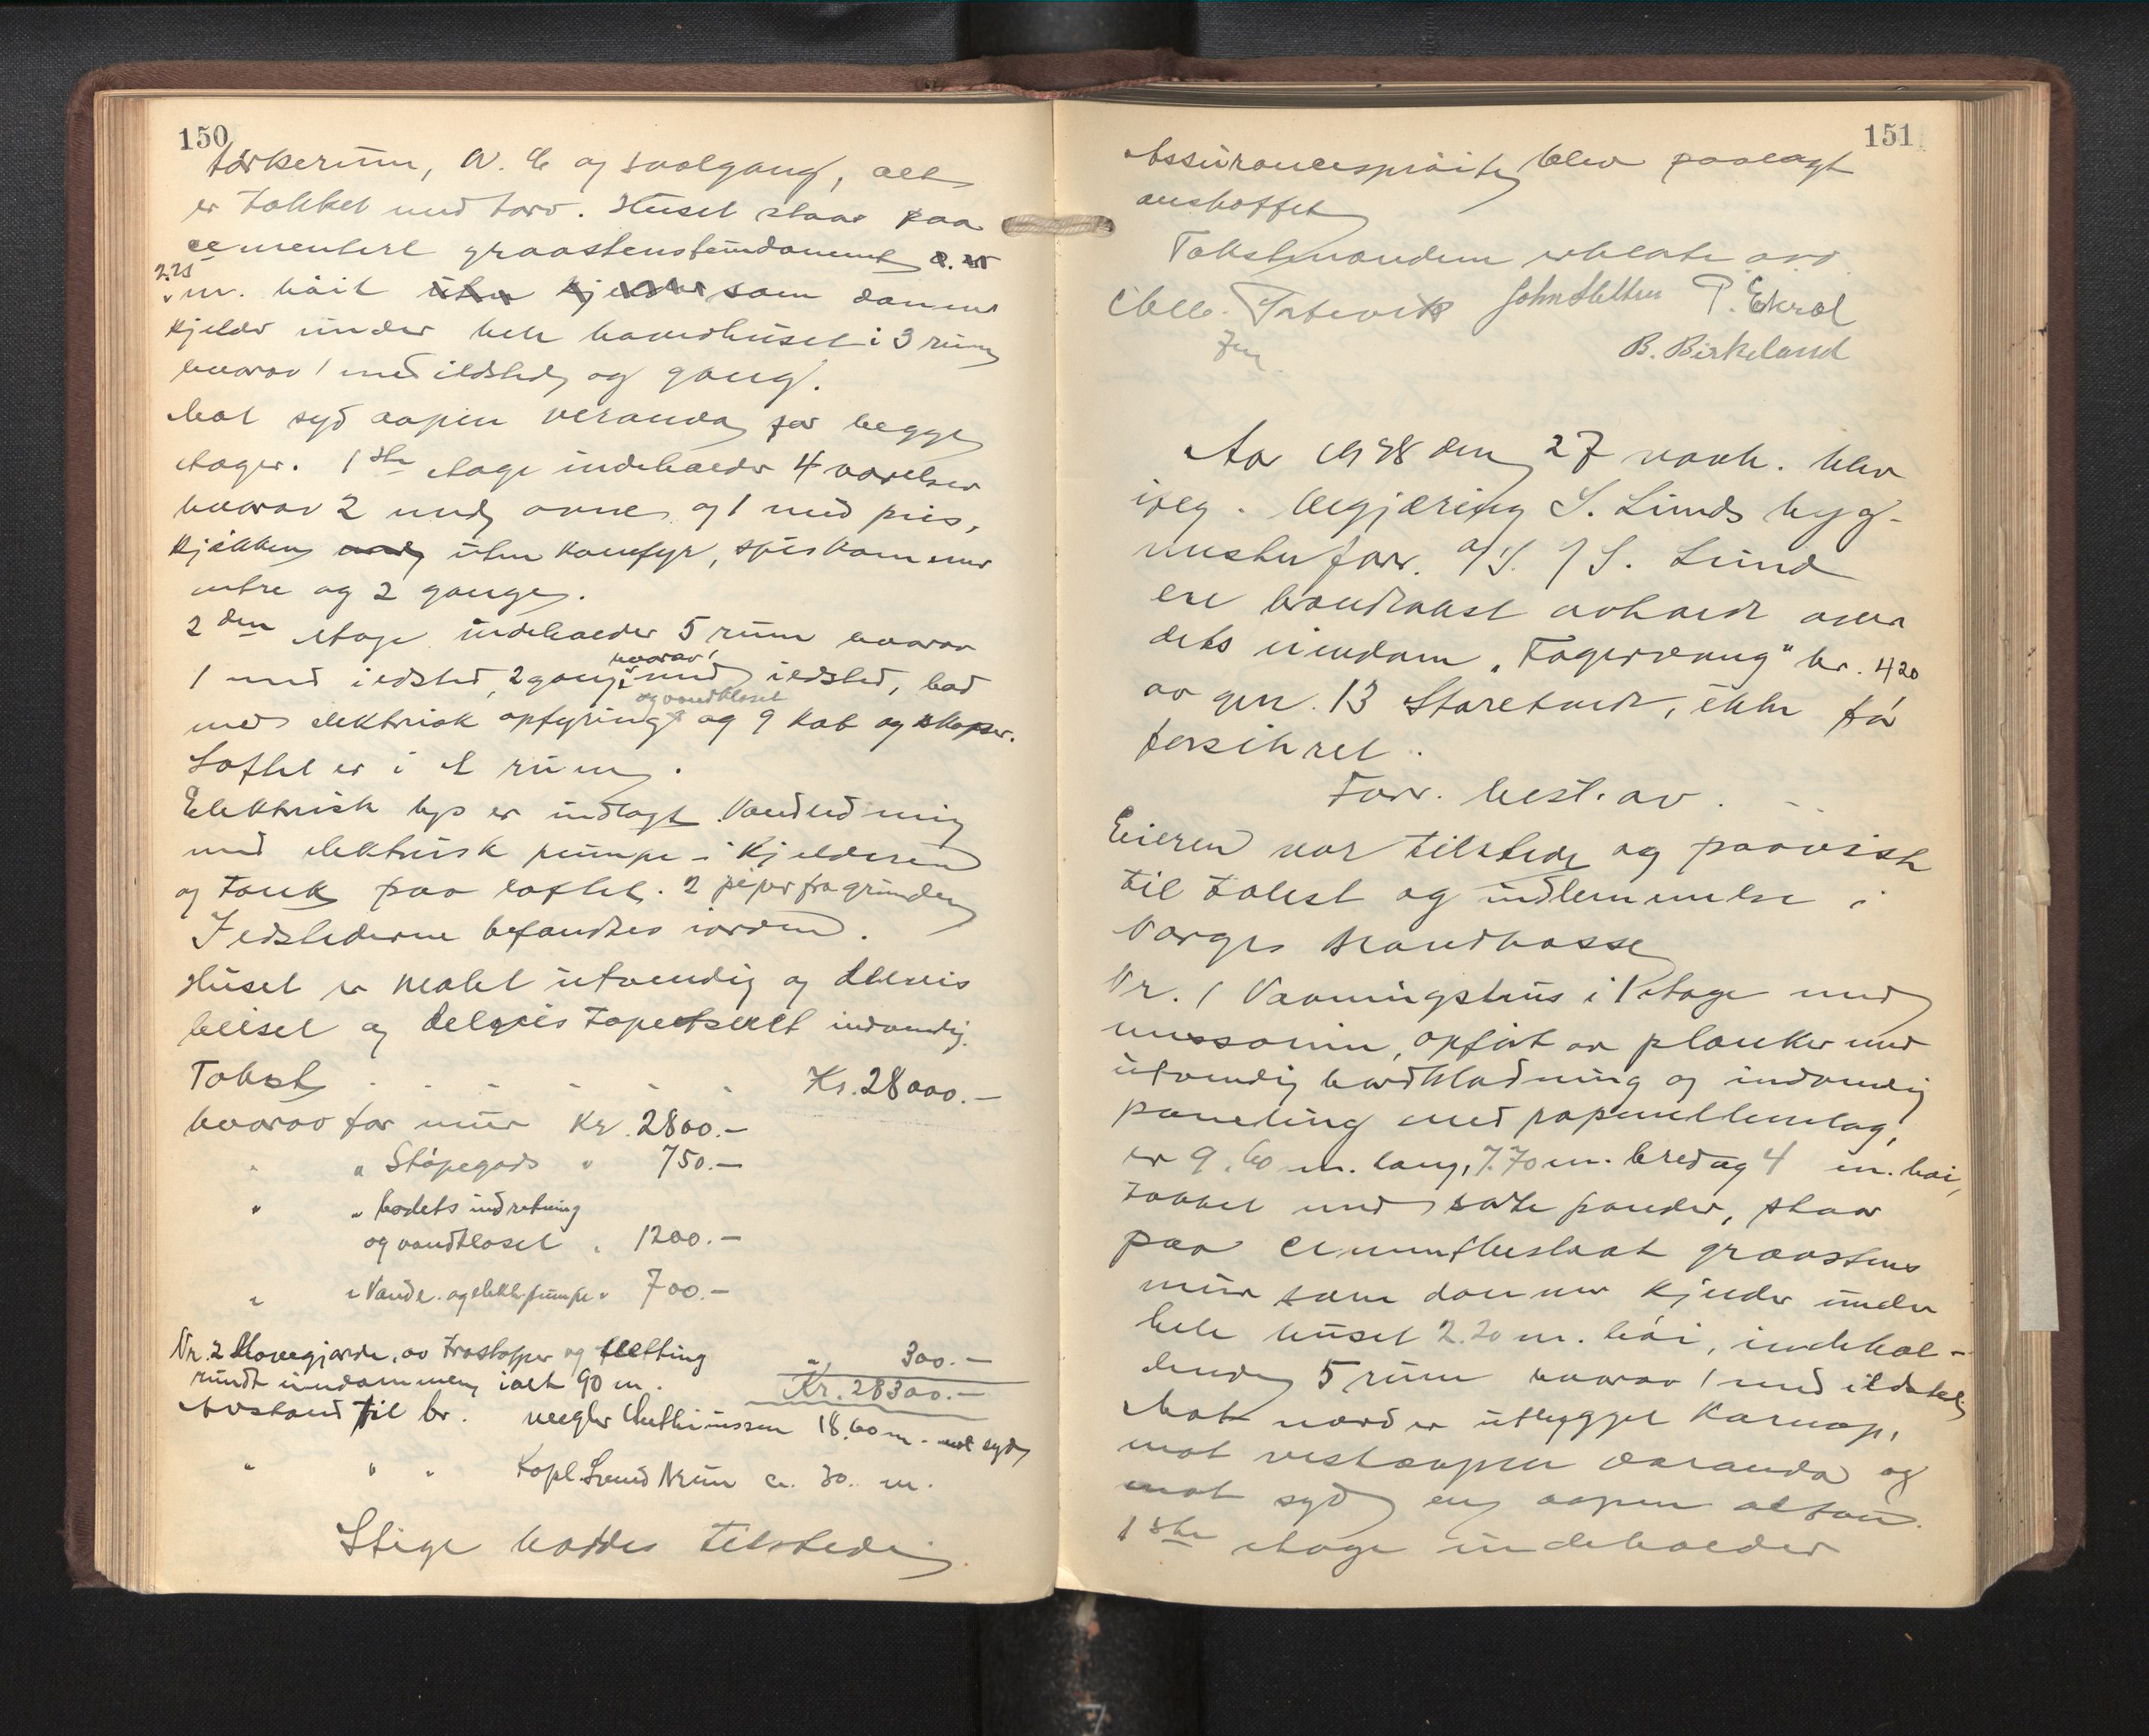 150
tørkerum, W. C og svalgang, alt
er tækket med torv. Huset staar paa
cementert graastensfundament
2.25 m. høit som danner
kjelder under hele vaanehuset i 3 rum
hvorav 1 med ildsted og gang.
Mot syd aapen veranda for begge
etager. 1ste etage indeholder 4 værelser
hvorav 2 med ovne og 1 med peis,
kjøkken uten komfyr, spiskammer
entre og 2 gange.
2den etage indeholder 5 rum hvorav
1 med ildsted, 2 gange hvorav 1 med ildsted, bad
med elektrisk opfyring og vandkloset og 9 kot og skaper.
Loftet er i et rum.
Elektrisk lys er indlagt. Vandledning
med elektrisk pumpe i kjelderen
og tank paa loftet. 2 piper fra grunden
Ildstederne befandtes iorden.
Huset er malet utvendig og delvis
beiset og delvis tapetseret indvendig.
Takst . . . . . . Kr. 28000.-
hvorav for mur Kr. 2800.-
" " Støpegods " 750.-
" " badets indretning
og vandkloset " 1200.-
" " Vandl. og elektr. pumpe " 700.-
Nr. 2 Havegjærde, av træstolper og fletting
rundt eiendommen ialt 90 m. " 300.-
Kr. 28300.-
Avstand til br. mægler Mathiussen 18.60 m. mot syd
" " " Kapt. Svend Brun ca. 30. m.
Stige haddes tilstede
151
Assurancesprøite blev paalagt
anskaffet
Takstmændene erklærte avd.
John Sletten P. Ekrol
B. Birkeland
Aar 1928 den 27 novb. blev
ifølg. begjæring S. Lunds byg-
mesterforr. A/S. v/ S. Lund
en brandtakst avholdt over
dets eiendom „Fagervang" br. 420
av gnr. 13 Storetveit, ikke før
forsikret.
Forr. best. av. - -
Eieren var tilstede og paaviste
til takst og indlemmelse i
Norges Brandkasse
Nr. 1 Vaaningshus i 1 etage med
messanin, opført av planker med
utvendig bordklædning og indvendig
paneling med papmellemlag,
er 9.60 m. lang, 7.70 m. bred og 4 m. høi,
tækket med sorte pander, staar
paa cementbeslaat graastens
mur som danner kjelder under
hele huset 2.20 m. høi, indehol-
dende 5 rum hvorav 1 med ildsted
Mot nord er utbygget karnap,
mot vest aapen veranda og
mot syd en aapen altan.
1ste etage indeholder